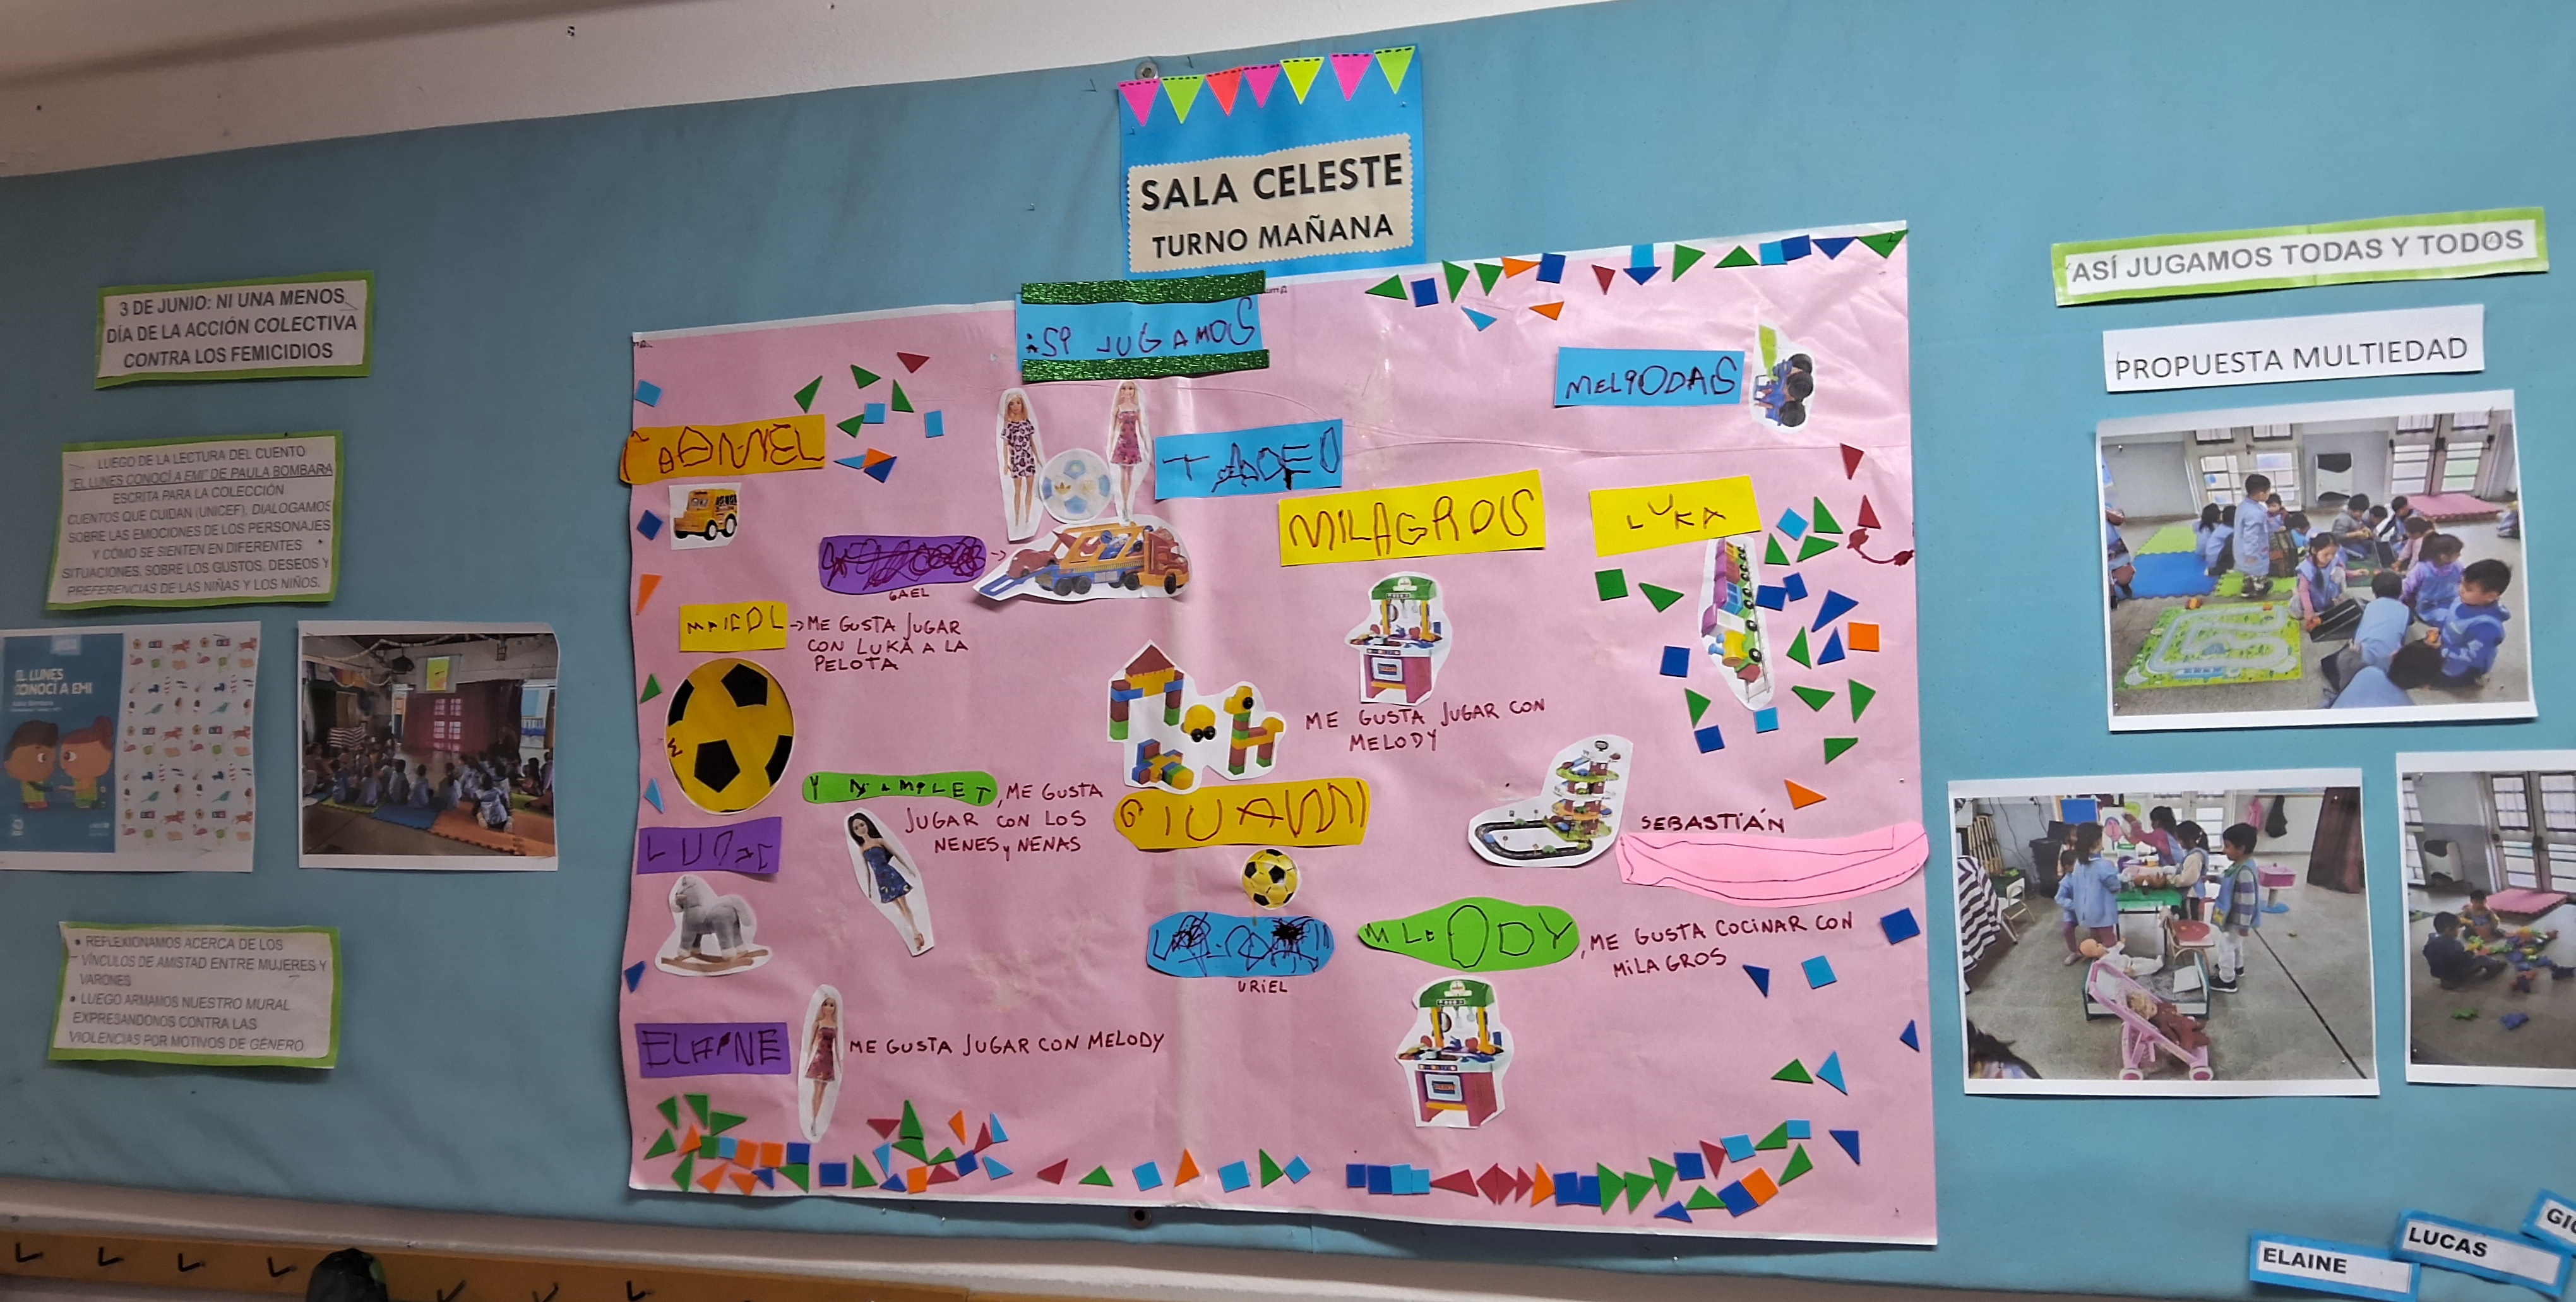 SALA CELESTE
TURNO MAÑANA
3 DE JUNIO: NI UNA MENOS
DÍA DE LA ACCIÓN COLECTIVA
CONTRA LOS FEMICIDIOS
LUEGO DE LA LECTURA DEL CUENTO
"EL LUNES CONOCÍ A EMI" DE PAULA BOMBARA
ESCRITA PARA LA COLECCIÓN
CUENTOS QUE CUIDAN (UNICEF), DIALOGAMOS
SOBRE LAS EMOCIONES DE LOS PERSONAJES
Y CÓMO SE SIENTEN EN DIFERENTES
SITUACIONES, SOBRE LOS GUSTOS, DESEOS Y
PREFERENCIAS DE LAS NIÑAS Y LOS NIÑOS.
EL LUNES
CONOCÍ A EMI
• REFLEXIONAMOS ACERCA DE LOS
VÍNCULOS DE AMISTAD ENTRE MUJERES Y
VARONES
• LUEGO ARMAMOS NUESTRO MURAL
EXPRESANDONOS CONTRA LAS
VIOLENCIAS POR MOTIVOS DE GÉNERO
JUGAMOS
MELIODAS
TADEO
MILAGROS
LUKA
GAEL
MAICOL → ME GUSTA JUGAR
CON LUKA A LA
PELOTA
ME GUSTA JUGAR CON
MELODY
, ME GUSTA
JUGAR CON LOS
NENES y NENAS
SEBASTIÁN
URIEL
, ME GUSTA COCINAR CON
MILAGROS
ELAINE
ME GUSTA JUGAR CON MELODY
ASÍ JUGAMOS TODAS Y TODOS
PROPUESTA MULTIEDAD
ELAINE
LUCAS